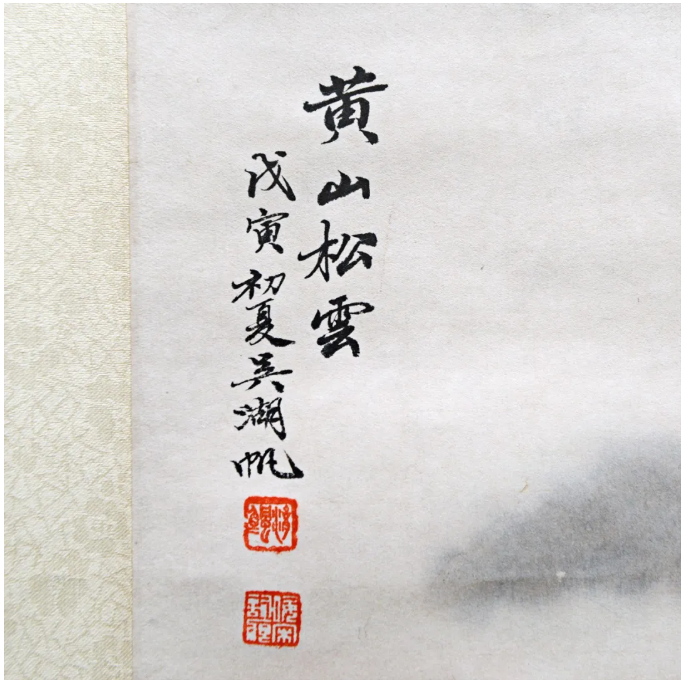 黄山松雲
戊寅初夏吳湖帆